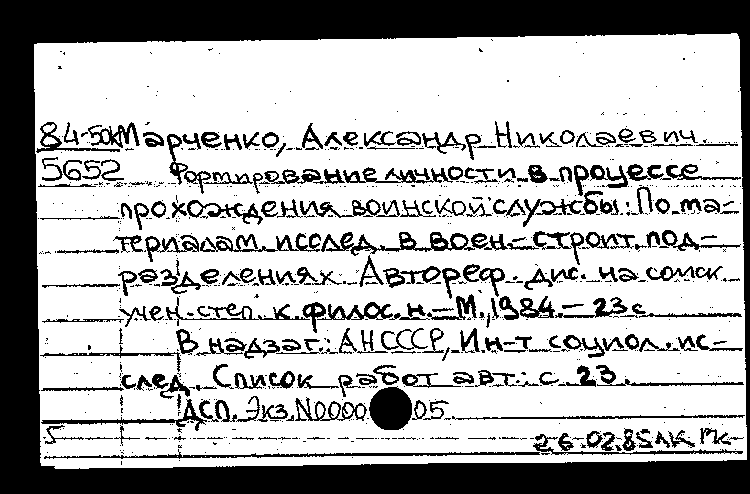 84-50к Марченко, Александр Николаевич.
5652 Формирование личности в процессе
прохождения воинской службы: По ма-
териалам исслед. в воен.-строит. под-
разделениях. Автореф. дис. на соиск.
учен. степ. к. филос. н. — М., 1984. — 23 с.
В надзаг.: АН СССР, Ин-т социол. ис-
след. Список работ авт.: с. 23.
ДСП. Экз. N0000 05.
5
26.02.85